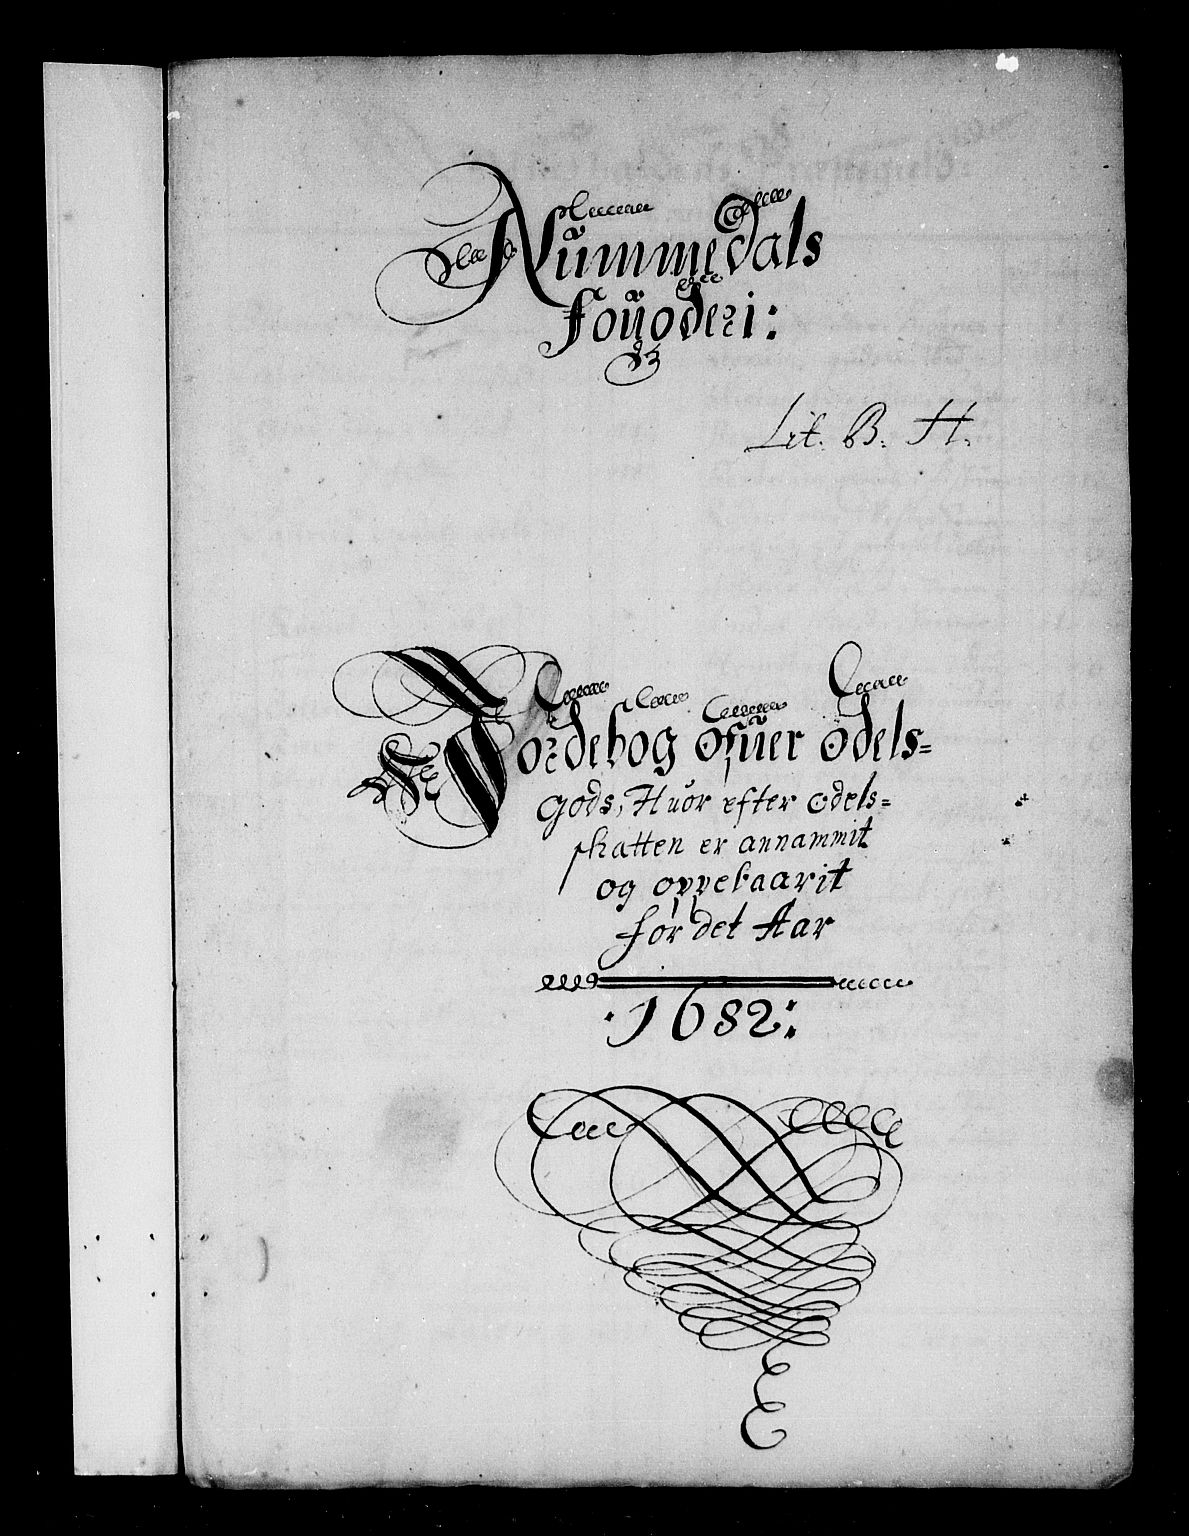 Nummedals
fouoderi:
Lit. B. H.
Jordebog ofuer odels=
gods, Huor efter odels=
skatten er annammit
og oppebaarit
for det Aar
1682: